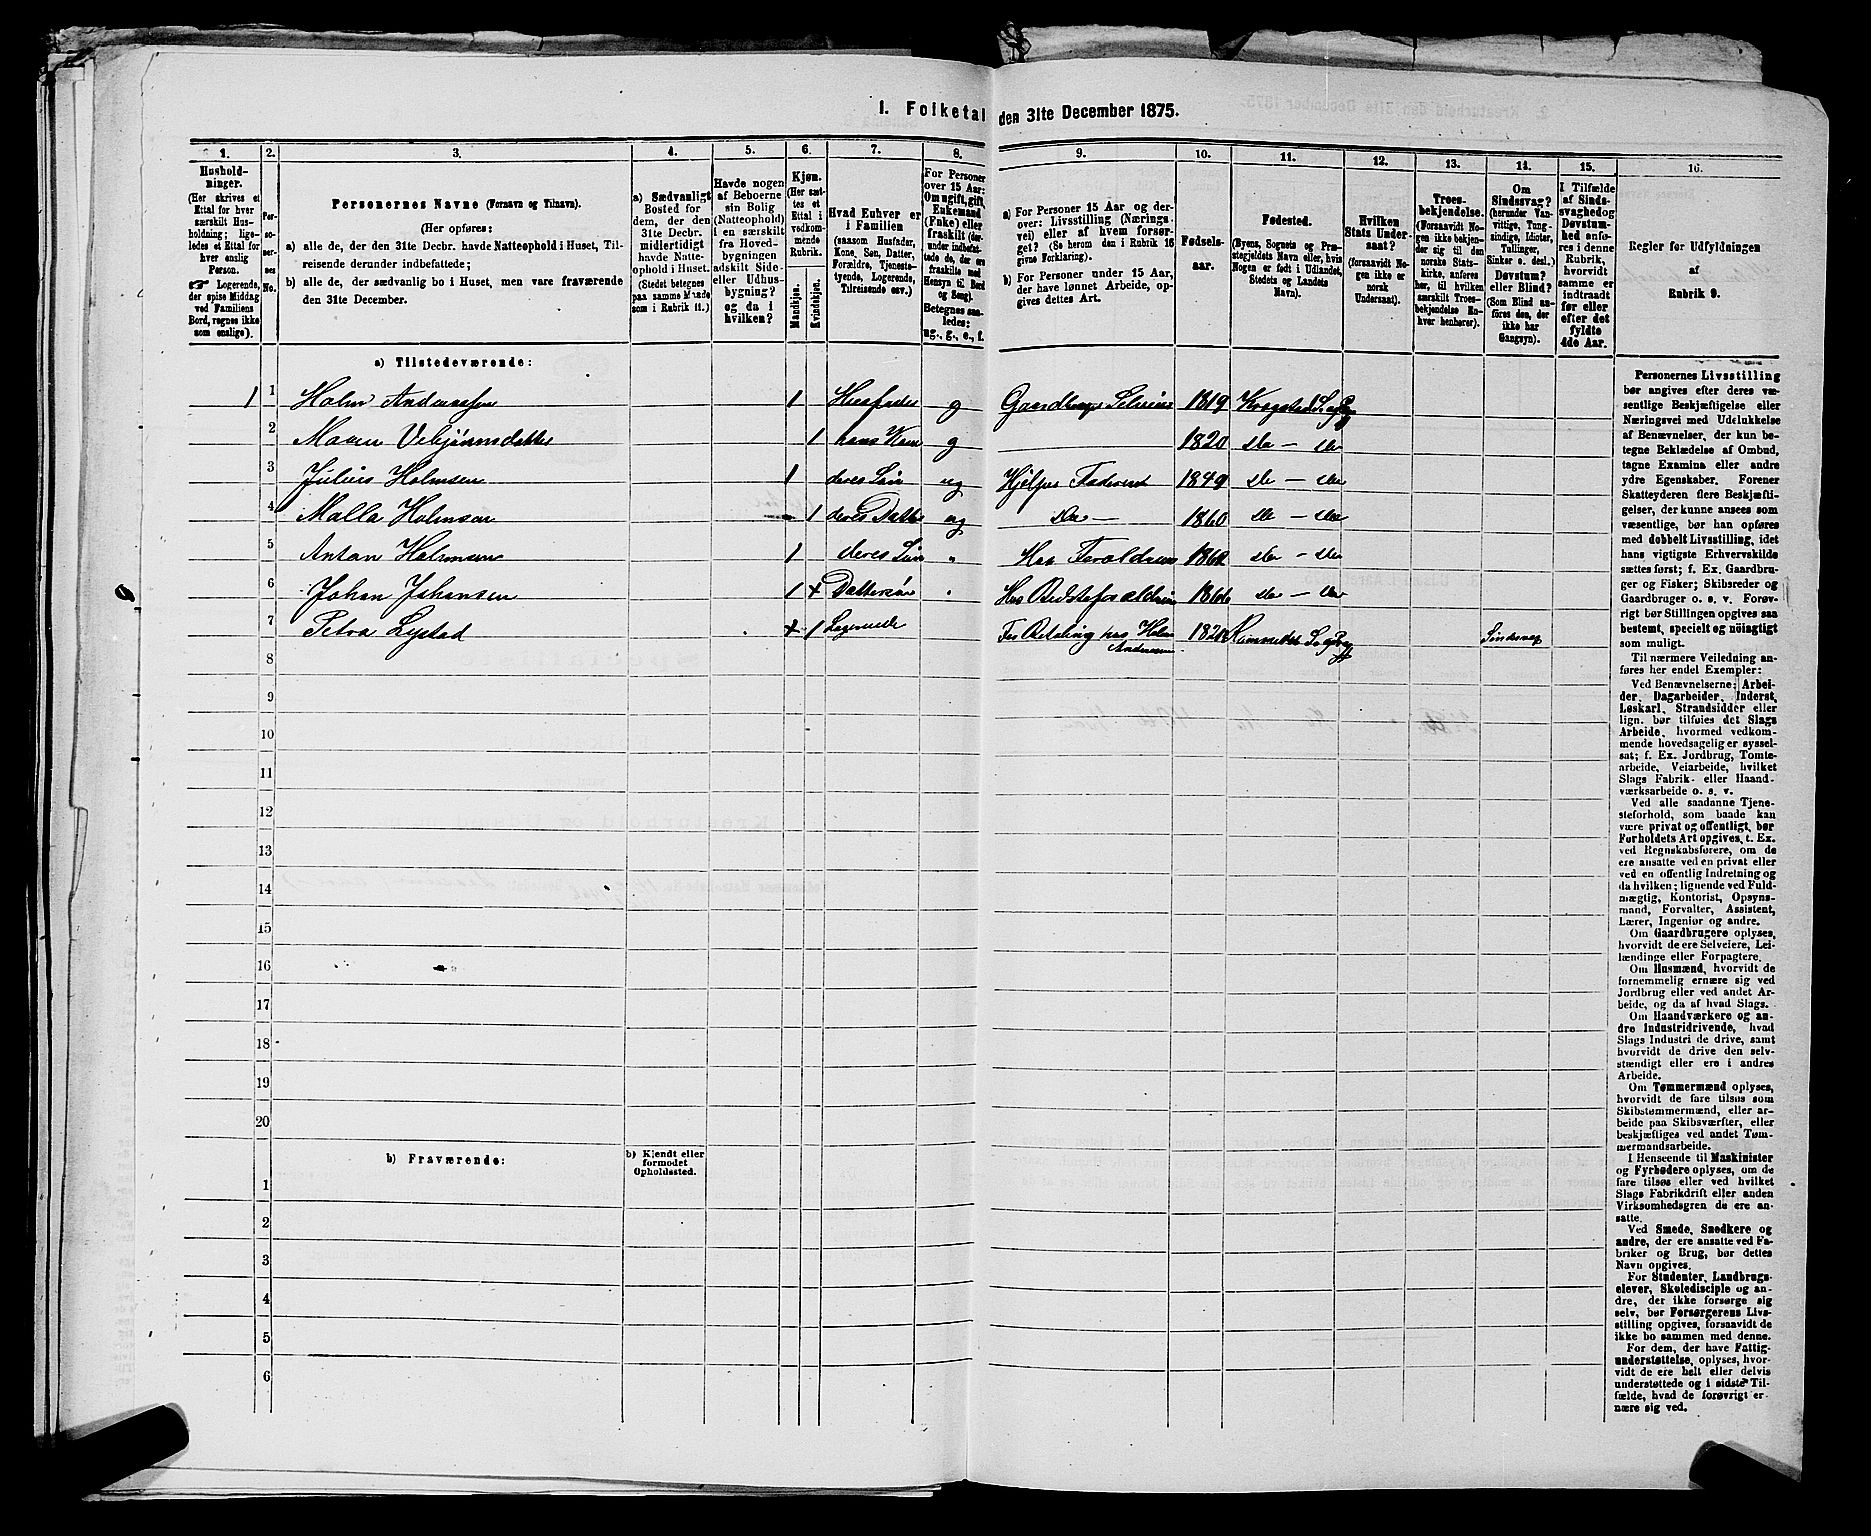 1. Folketal den 31te December 1875.
1. 2. 3. 4. 5. 6. 7. 8. 9. 10. 11. 12. 13. 14. 15. 16.
Hushold-
ninger.
(Her skrives et
Ettal for hver
særskilt Hus-
holdning; lige-
ledes et Ettal for
hver enslig
Person.
Logerende,
der spise Middag
ved Familiens
Bord, regnes ikke
som enslige).
Per-
so-
ner-
nes
No.
Personernes Navne (Fornavn og Tilnavn).
(Her opføres:
a) alle de, der den 31te Decbr. havde Natteophold i Huset, Til-
reisende derunder indbefattede;
b) alle de, der sædvanlig bo i Huset, men vare fraværende
den 31te December.
a) Sædvanligt
Bosted for
dem, der den
31te Decbr.
midlertidigt
havde Natte-
ophold i Huset.
(Stedet betegnes
paa samme Maade
som i Rubrik 11.)
Havde nogen
af Beboerne
sin Bolig
(Natteophold)
i en særskilt
fra Hoved-
bygningen
adskilt Side-
eller Udhus-
bygning?
og da i
hvilken?
Kjøn.
(Her sæt-
tes et
Ettal i
vedkom-
mende
Rubrik.
Mandkjøn.
Kvindekjøn.
Hvad Enhver er
i Familien
(saasom Husfader,
Kone, Søn, Datter,
Forældre, Tjeneste-
tyende, Logerende,
Tilreisende osv.)
For Personer
over 15 Aar:
Om ugift, gift,
Enkemand
(Enke) eller
fraskilt (der-
under indbefat-
tede de, der ere
fraskilte med
Hensyn til Bord
og Seng).
Betegnes saa-
ledes:
ug., g., e., f.
a) For Personer 15 Aar og der-
over: Livsstilling (Nærings-
vei) eller af hvem forsør-
get? (Se herom den i Rubrik 16
givne Forklaring).
b) For Personer under 15 Aar,
der have lønnet Arbeide, op-
gives dettes Art.
Fødsels-
aar.
Fødested.
(Byens, Sognets og Præ-
stegjeldets Navn eller, hvis
Nogen er født i Udlandet,
Stedets og Landets
Navn).
Hvilken
Stats Under-
saat?
(forsaavidt No-
gen ikke er
norsk
Undersaat).
Troes-
bekjendelse.
(Forsaavidt No-
gen ikke bekjen-
der sig til den
norske Stats-
kirke, anføres
her, til hvilken
særskilt Troes-
bekjendelse En-
hver henhører).
Om
Sindssvag?
(herunder Van-
vittige, Tung-
sindige, Idioter,
Tullinger,
Sinker o. desl.)
Døvstum?
eller Blind?
(Som Blind an-
føres den, der
ikke har
Gangsyn).
I Tilfælde
af Sinds-
svaghed og
Døvstum-
hed anfø-
res i denne
Rubrik,
hvorvidt
samme er
indtraadt
før eller
efter det
fyldte
4de Aar.
Regler for Udfyldningen
af
Rubrik 9.
a) Tilstedeværende:
1 1 Holm Anderssen 1 Husfader g Gaardbruger Selveier 1819 Kragstad
2 Maren Vebjørnsdatter 1 hans Kone g 1820 do — do
3 Julius Holmsen 1 deres Søn ug Hjelper Faderen 1849 do — do
4 Malla Holmsen 1 deres Datter ug do — 1860 do — do
5 Anton Holmsen 1 deres Søn " Hos Forældrene do — do
6 Johan Johansen 1 + Dattersøn " Hos Bedsteforældrene 1866 do — do
7 Petra Lystad + 1 Logerende For Betaling hos Holm Sindssvag
Anderssen
8
9
10
11
12
13
14
15
16
17
18
19
20
b) Fraværende:
b) Kjendt eller
formodet
Opholdssted.
1
2
3
4
5
6
Personernes Livsstilling
bør angives efter deres væ-
sentlige Beskjæftigelse eller
Næringsvei med Udelukkelse
af Benævnelser, der kun be-
tegne Beklædelse af Ombud,
tagne Examina eller andre
ydre Egenskaber. Forener
Skatteyderen flere Beskjæfti-
gelser, der kunne ansees som
væsentlige, bør han opføres
med dobbelt Livsstilling, idet
hans vigtigste Erhvervskilde
sættes først; f. Ex. Gaardbru-
ger og Fisker; Skibsreder og
Gaardbruger o. s. v. Forøv-
rigt bør Stillingen opgives saa
bestemt, specielt og nøiagtigt
som muligt.
Til nærmere Veiledning an-
føres her endel Exempler:
Ved Benævnelserne: Arbei-
der, Dagarbeider, Inderst,
Løskarl, Strandsidder eller
lign. bør tilføies det Slags
Arbeide, hvormed vedkom-
mende hovedsagelig er syssel-
sat; f. Ex. Jordbrug, Tomte-
arbeide, Veiarbeide, hvilket
Slags Fabrik- eller Haand-
værksarbeide o. s. v.
Ved alle saadanne Tjene-
steforhold, som baade kan
være privat og offentligt, bør
Forholdets Art opgives, t. Ex.
ved Regnskabsførere, om de
ere ansatte ved en privat eller
ved en offentlig Indretning og
da hvilken; lignende ved Fuld-
mægtig, Kontorist, Opsyns-
mand, Forvalter, Assistent,
Lærer, Ingeniør og andre.
Om Gaardbrugere oplyses,
hvorvidt de ere Selveiere, Lei-
lændinge eller Forpagtere.
Om Husmænd, hvorvidt de
fornemmelig ernære sig ved
Jordbrug eller ved andet Ar-
beide, og da af hvad Slags.
Om Haandværkere og an-
dre Industridrivende, hvad
Slags Industri de drive, samt
hvorvidt de drive den selv-
stændigt eller ere i andres
Arbeide.
Om Tømmermænd oplyses,
hvorvidt de fare tilsøs som
Skibstømmermænd, eller ar-
beide paa Skibsværfter, eller
beskjæftiges ved andet Tøm-
mermandsarbeide.
I Henseende til Maskinister
og Fyrbødere oplyses, om de
fare tilsøs eller ved hvilket
Slags Fabrikdrift eller anden
Virksomhedsgren de ere an-
satte.
Ved Smede, Snedkere og
andre, der ere ansatte ved Fa-
briker og Brug, bør dettes
Navn opgives.
For Studenter, Landbrugs-
elever, Skoledisciple og an-
dre, der ikke forsørge sig
selv, bør Forsørgerens Livs-
stilling opgives, forsaavidt de
ikke bo sammen med denne.
For dem, der have Fattig-
understøttelse, oplyses, hvor-
vidt de ere helt eller delvis
understøttede og i sidste Til-
fælde, hvad de forøvrigt er-
nære sig ved.